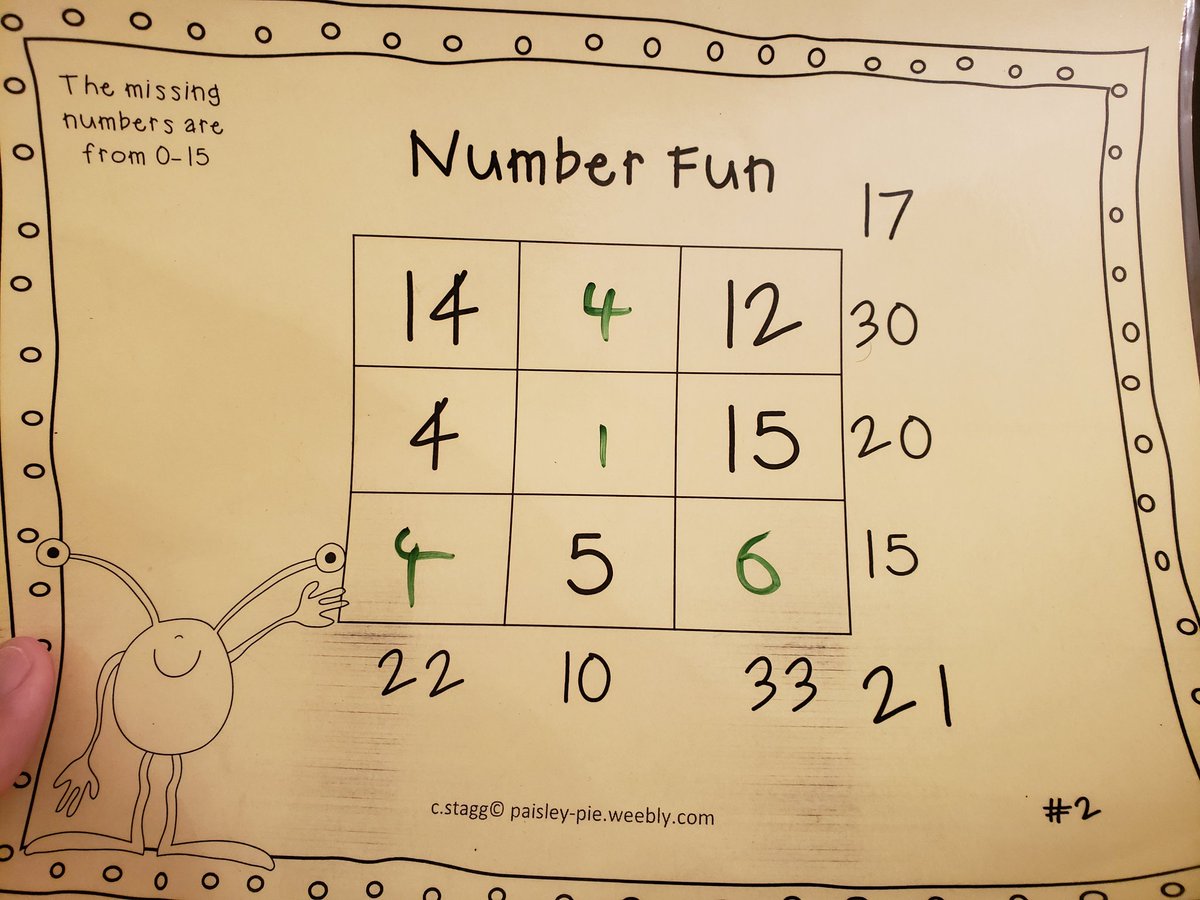 The missing
numbers are
from 0-15
Number Fun
17
14 4 12 30
4 1 15 20
4 5 6 15
22 10 33 21
c.stagg© paisley-pie.weebly.com
#2